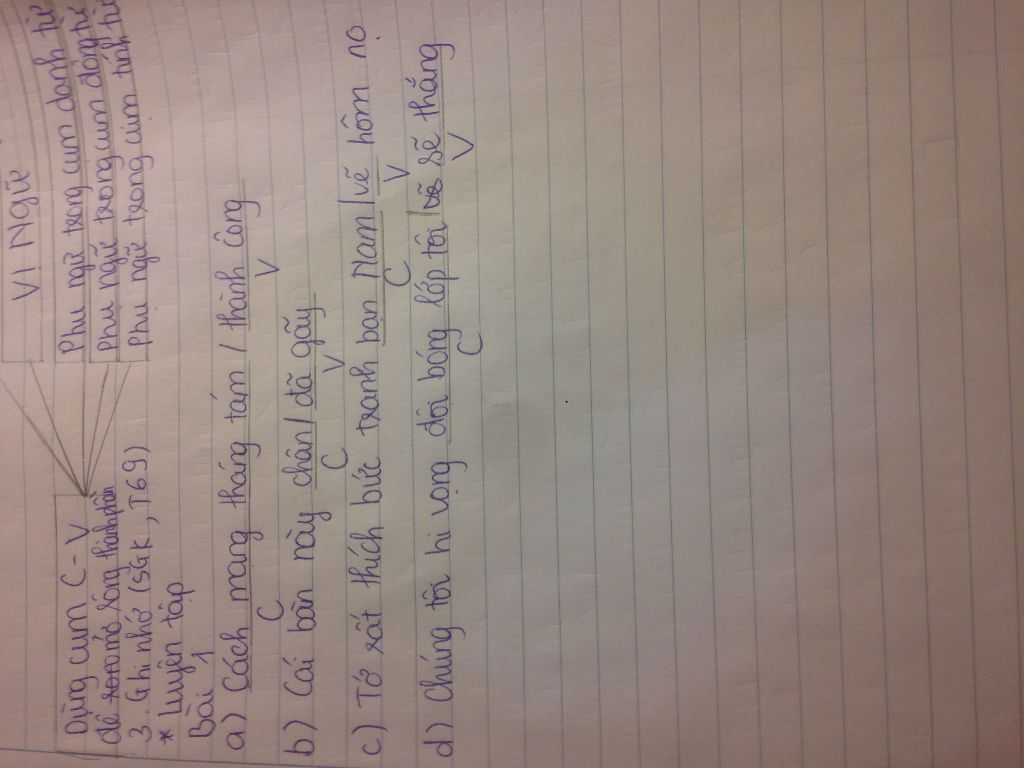 Vị Ngữ
Phụ ngữ trong cụm danh từ
Dùng cụm C - V
Phụ ngữ trong cụm động từ
để mở rộng thành phần
Phụ ngữ trong cụm tính từ
3. Ghi nhớ (SGK, T69)
* Luyện tập
Bài 1
a) Cách mạng tháng tám / thành công
C V
b) Cái bàn này chân / đã gãy
C V
c) Tớ rất thích bức tranh bạn Nam / vẽ hôm nọ
C V
d) Chúng tôi hi vọng đội bóng lớp tôi / sẽ thắng
C V